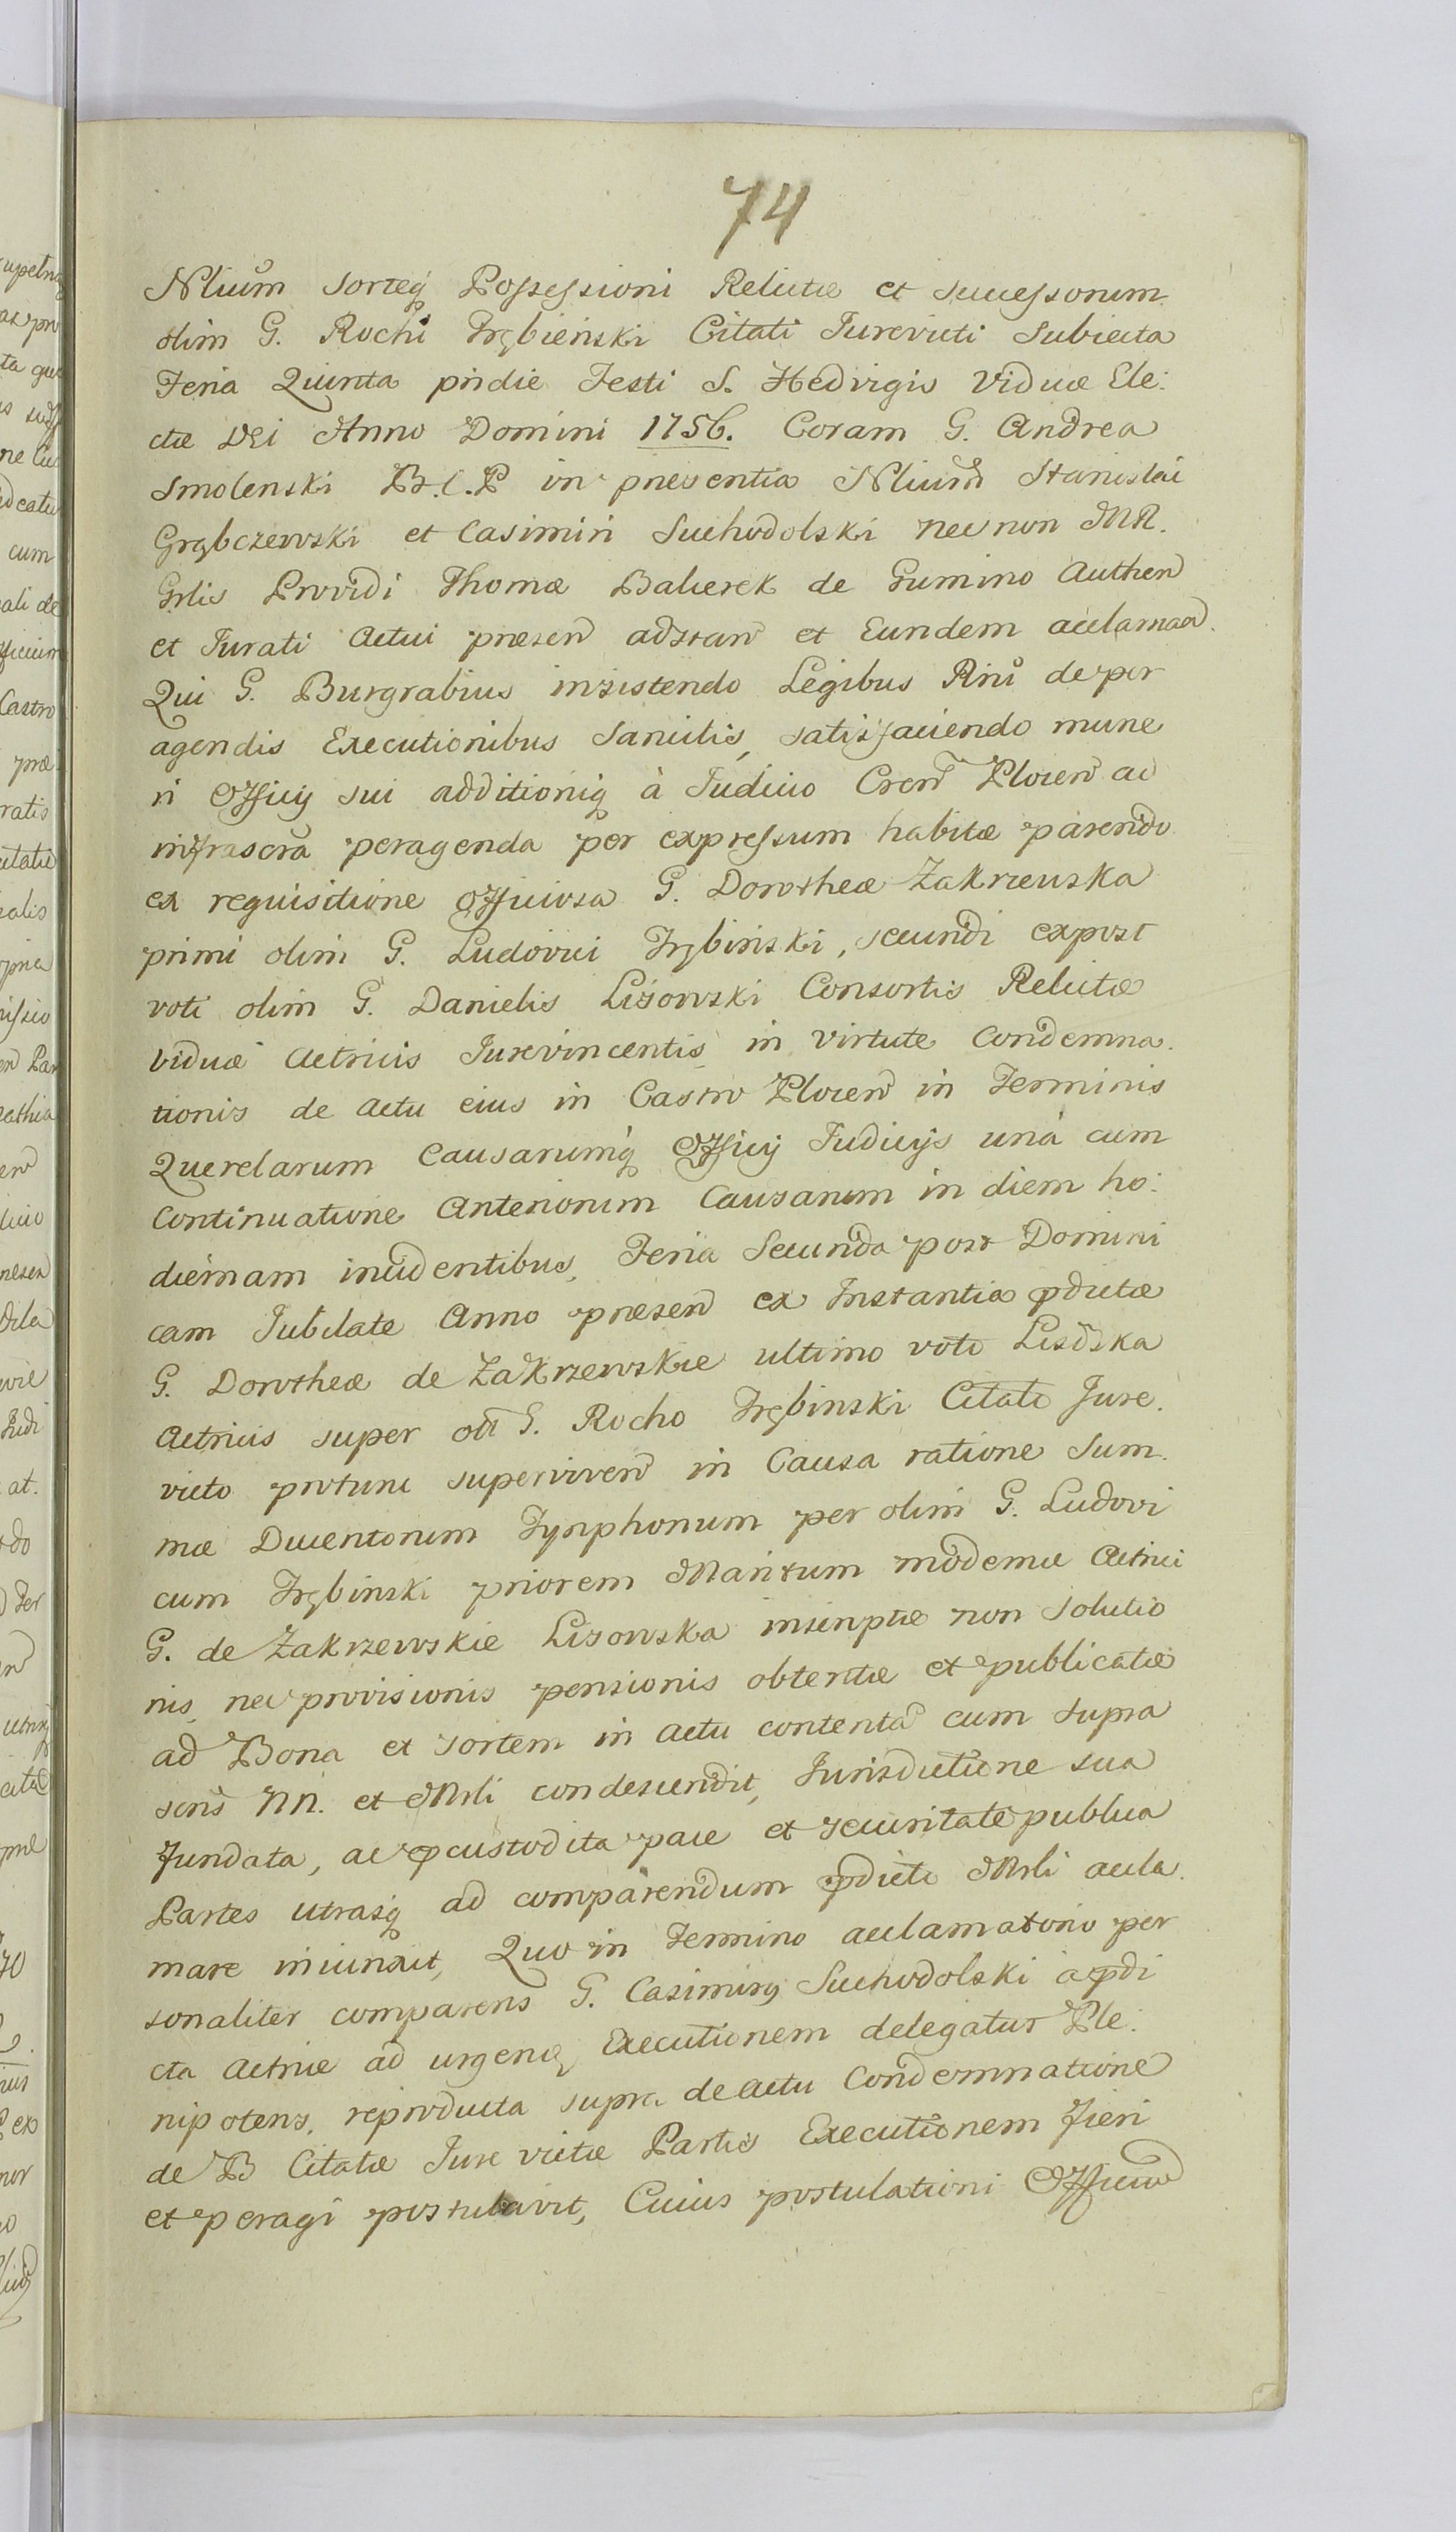 74
Nlium sorteq Possessioni Relictæ et Successorum
olim G. Rochi Trębieński Citati Jurevicti Subiecta
Feria Quinta pridie Festi S. Hedvigis Viduæ Ele:
ctæ DEi Anno Domini 1756. Coram G. Andrea
Smolenski B.C.P in præsentia Nlium Stanislai
Grąbczewski et Casimiri Suchodolski nec non MR.
Grlis Providi Thomæ Balierek de Gumino Authen
et Jurati Actui præsen adstan et Eundem acclaman.
Qui G. Burgrabius insistendo Legibus Rni de per
agendis Executionibus Sancitis, satisfaciendo mune
ri Officij sui additioniq à Judicio Cren Plocen ad
infrascra peragenda per expressum habitæ parendo
ex requisitione officiosa G. Dorotheæ Zakrzewska
primi olim G. Ludovici Trębiński, secundi expost
voti olim G. Danielis Lisowski Consortis Relictæ
viduæ Actricis Jurevincentis in virtute Condemna.
tionis de actu eius in Castro Plocen in Terminis
Querelarum Causarumq Officij Judicijs una cum
Continuatione Anteriorum Causarum in diem ho:
diernam incidentibus, Feria Secunda post Domini
cam Jubilate Anno præsen ex Instantia pdictæ
G. Dorotheæ de Zakrzewskie ultimo voto Lisoska
Actricis super olī G. Rocho Trębinski Citato Jure.
victo protunc superviven in Causa ratione Sum.
mæ Ducentorum Tynphonum per olim G. Ludovi
cum Trębinski priorem Maritum modernæ Actrici
G. de Zakrzewskie Lisowska inscriptæ non Solutio
nis, nec provisionis pensionis obtentæ et publicatæ
ad Bona et sortem in actu contenta cum supra
scris NN. et Mrli condescendit, Jurisdictione sua
fundata, ac pcustodita pace et securitate publica
Partes utrasq ad comparendum pdicti Mrli accla.
mare iniunxit, Quo in Termino acclamatorio per
sonaliter comparens G. Casimirq Suchodolski à pdi
cta Actrice ad urgenq Executionem delegatus Ple:
nipotens, reproducta supra de actu Condemnatione
de B Citatæ Jure victæ Partis Executionem fieri
et peragi postulavit, Cuius postulationi Officiu